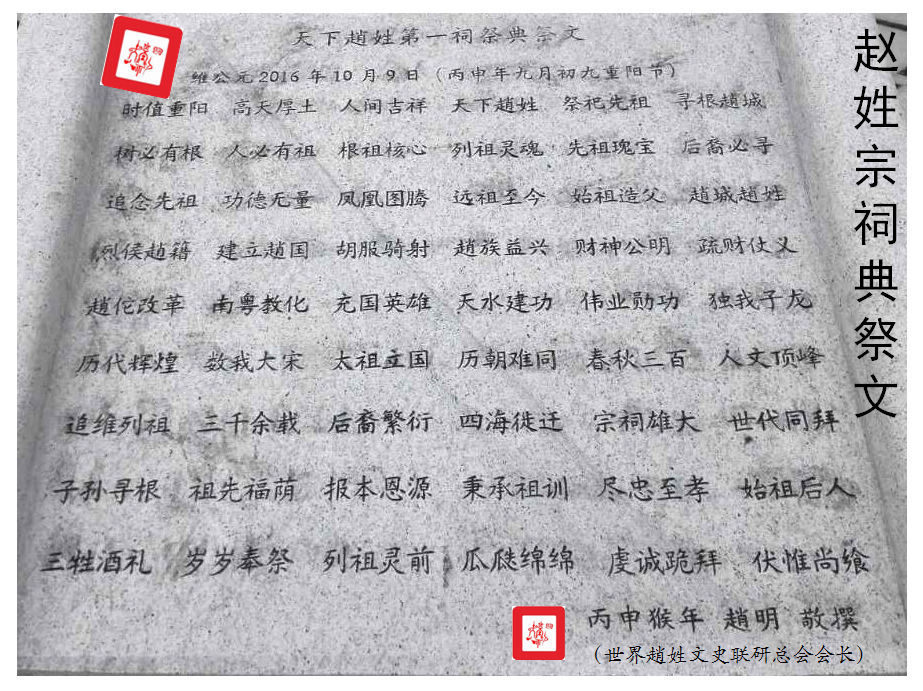 赵姓宗祠典祭文
天下趙姓第一祠祭典祭文
维公元2016年10月9日（丙申年九月初九重阳节）
时值重阳 高天厚土 人间吉祥 天下趙姓 祭祀先祖 寻根趙城
树必有根 人必有祖 根祖核心 列祖灵魂 先祖瑰宝 后裔必寻
追念先祖 功德无量 凤凰图腾 远祖至今 始祖造父 趙城趙姓
烈侯趙籍 建立趙国 胡服骑射 趙族益兴 财神公明 疏财仗义
趙佗改革 南粤教化 充国英雄 天水建功 伟业勋功 独我子龙
历代辉煌 数我大宋 太祖立国 历朝难同 春秋三百 人文顶峰
追维列祖 三千余载 后裔繁衍 四海徙迁 宗祠雄大 世代同拜
子孙寻根 祖先福荫 报本恩源 秉承祖训 尽忠至孝 始祖后人
三牲酒礼 岁岁奉祭 列祖灵前 瓜瓞绵绵 虔诚跪拜 伏惟尚飨
丙申猴年 趙明 敬撰
（世界趙姓文史联研总会会长）